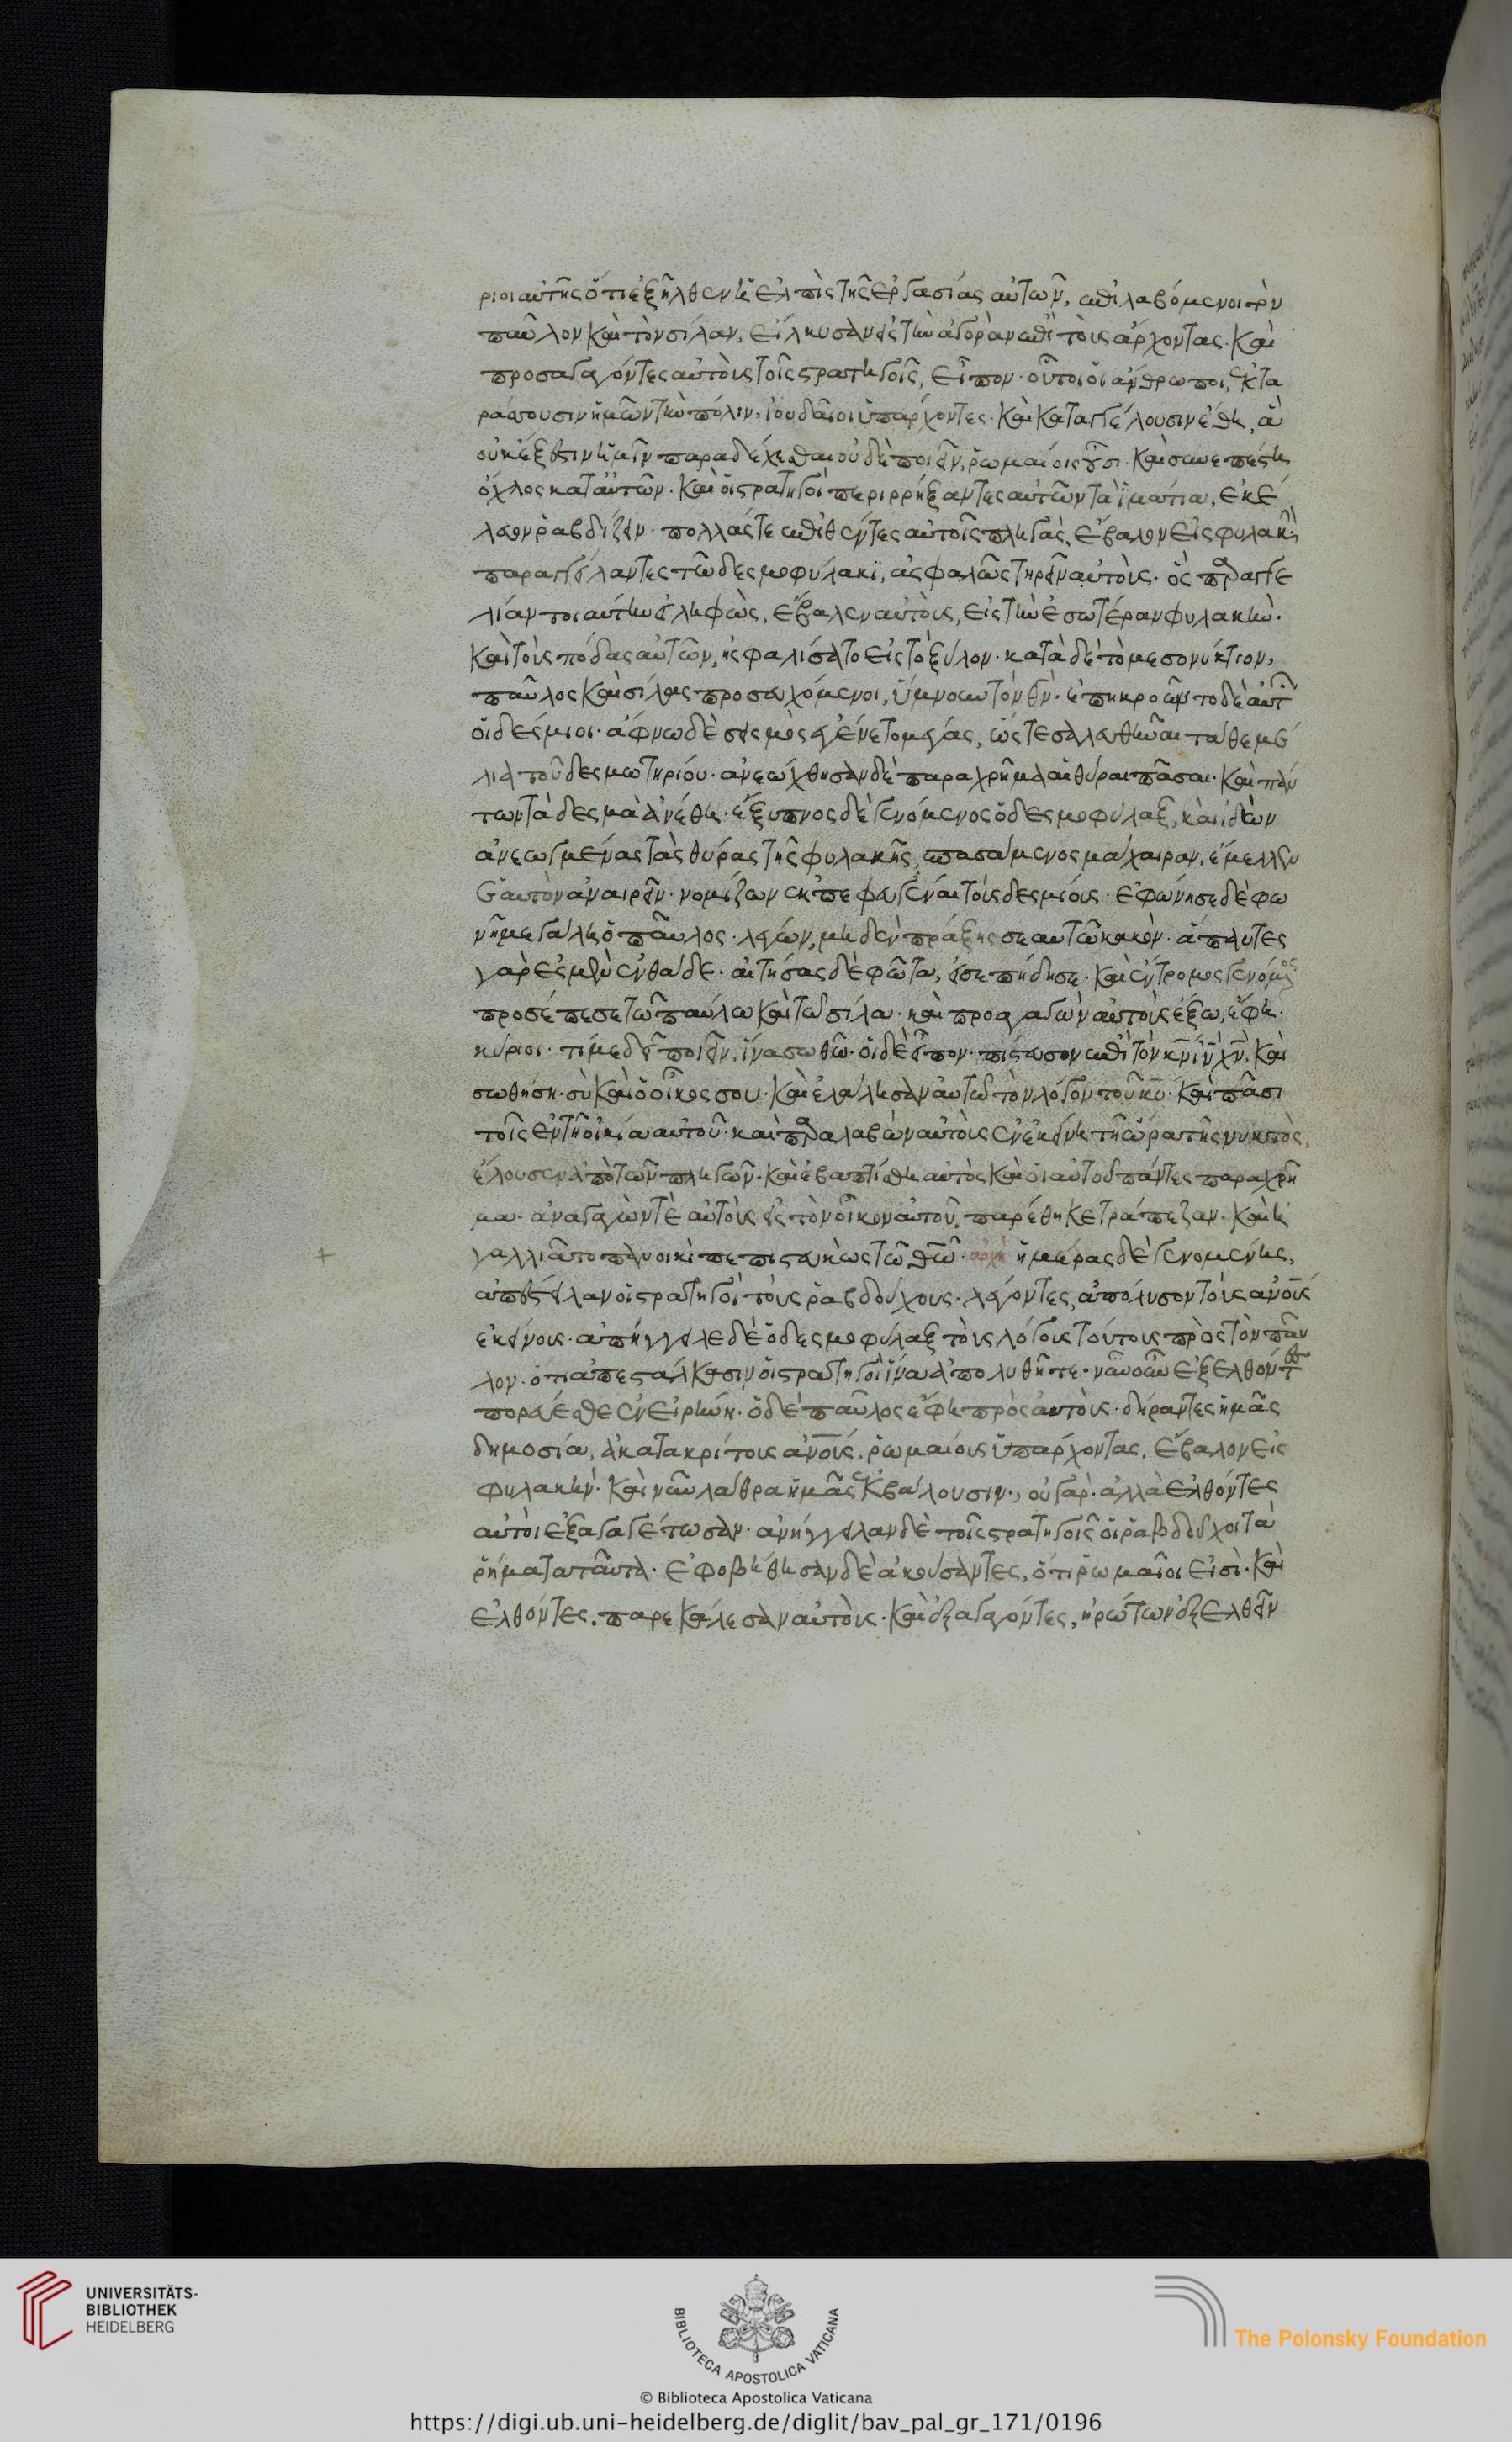 ριοι αὐτῆς ὅτι ἐξῆλθεν ἡ ἐλπὶς τῆς ἐργασίας αὐτῶν, ἐπιλαβόμενοι τὸν
παῦλον καὶ τὸν σίλαν, εἵλκυσαν εἰς τὴν ἀγορὰν ἐπὶ τοὺς ἄρχοντας. καὶ
προσαγαγόντες αὐτοὺς τοῖς στρατηγοῖς, εἶπον· οὗτοι οἱ ἄνθρωποι, ἐκτα
ράσσουσιν ἡμῶν τὴν πόλιν, ἰουδαῖοι ὑπάρχοντες· καὶ καταγγέλουσιν ἔθη, ἃ
οὐκ ἔξεστιν ἡμῖν παραδέχεσθαι οὐδὲ ποιεῖν, ῥωμαίοις οὖσι. καὶ συνεπέστη
ὄχλος κατ αὐτῶν. καὶ οἱ στρατηγοὶ περιρρήξαντες αὐτῶν τὰ ἱμάτια, ἐκέ
λευον ῥαβδίζειν· πολλάς τε ἐπιθέντες αὐτοῖς πληγὰς, ἔβαλον εἰς φυλακὴν
παραγγείλαντες τῶ δεσμοφύλακϊ, ἀσφαλῶς τηρεῖν αὐτοὺς. ὃς παραγγε
λίαν τοιαύτην εἰληφὼς, ἔβαλεν αὐτοὺς, εἰς τὴν ἐσωτέραν φυλακὴν.
καὶ τοὺς πόδας αὐτῶν, ἠσφαλίσατο εἰς τὸ ξύλον· κατὰ δὲ τὸ μεσονύκτιον,
παῦλος καὶ σίλας προσευχόμενοι, ὕμνουν τὸν θν· ἐπηκροῶντο δὲ αὐτ
οἱ δέσμιοι· ἄφνω δὲ σεισμὸς ἐγένετο μέγας, ὥστε σαλευθῆναι τὰ θεμέ
λια τοῦ δεσμωτηρίου· ἀνεώχθησαν δὲ παραχρῆμα αἱ θύραι πᾶσαι· καὶ πάν
των τὰ δεσμὰ ἀνέθη· ἔξυπνος δὲ γενόμενος ὁ δεσμοφύλαξ, καὶ ἰδὼν
ἀνεωγμένας τὰς θύρας τῆς φυλακῆς, σπασάμενος μάχαιραν, ἔμελλεν
ἑαυτὸν ἀναιρεῖν· νομίζων ἐκπεφευγέναι τοὺς δεσμίους· ἐφώνησε δὲ φω
νῆ μεγάλη ὁ παῦλος· λέγων, μηδὲν πράξης σεαυτῶ κακὸν· ἅπαντες
γὰρ ἐσμὲν ἐνθάδε· αἰτήσας δὲ φῶτα, εἰσεπήδησε· καὶ ἔντρομος γενόμος
προσέπεσε τῶ παύλω καὶ τῶ σίλα· καὶ προαγαγὼν αὐτοὺς ἔξω, ἔφη·
κύριοι· τί με δεῖ ποιεῖν, ἵνα σωθῶ· οἱ δὲ εἶπον· πίστευσον ἐπὶ τὸν κν ιν χν, καὶ
σωθήση· σὺ καὶ ὁ οἶκος σου· καὶ ἐλάλησαν αὐτῶ τὸν λόγον τοῦ κυ· καὶ πᾶσι
τοῖς ἐν τῆ οἰκία αὐτοῦ· καὶ παραλαβὼν αὐτοὺς ἐν ἐκείνη τῆ ὥρα τῆς νυκτὸς,
ἔλουσεν ἀπὸ τῶν πληγῶν· καὶ ἐβαπτίσθη αὐτὸς καὶ οἱ αὐτοῦ πάντες παραχρῆ
μα· ἀναγαγὼν τὲ αὐτοὺς εἰς τὸν οἶκον αὐτοῦ, παρέθηκε τράπεζαν· καὶ ἠ
γαλλιᾶτο πανοικὶ πεπιστευκὼς τῶ θω· ἀρχὴ ἡμέρας δὲ γενομένης,
ἀπέστειλαν οἱ στρατηγοὶ τοὺς ῥαβδούχους· λέγοντες, ἀπόλυσον τοὺς ανους
ἐκείνους· ἀπήγγειλε δὲ ὁ δεσμοφύλαξ τοὺς λόγους τούτους πρὸς τὸν παῦ
λον· ὅτι ἀπεστάλκασιν οἱ στρατηγοὶ ἵνα ἀπολυθῆτε· νῦν οὖν ἐξελθόντες
πορεύεσθε ἐν εἰρήνη· ὁ δὲ παῦλος ἔφη πρὸς αὐτοὺς· δήραντες ἡμᾶς
δημοσία, ἀκατακρίτους ανους, ῥωμαίους ὑπάρχοντας, ἔβαλον εἰς
φυλακὴν· καὶ νῦν λάθρα ἡμᾶς ἐκβάλουσιν·, οὐ γὰρ· ἀλλὰ ἐλθόντες
αὐτοὶ ἐξαγαγέτωσαν· ἀνήγγειλαν δὲ τοῖς στρατηγοῖς οἱ ῥαβδοῦχοι τὰ
ῥήματα ταῦτα· ἐφοβήθησαν δὲ ἀκούσαντες, ὅτι ῥωμαῖοι εἰσὶ· καὶ
ἐλθόντες, παρεκάλεσαν αὐτοὺς· καὶ ἐξαγαγόντες, ἠρώτων ἐξελθεῖν
UNIVERSITÄTS-
BIBLIOTHEK
HEIDELBERG
BIBLIOTECA APOSTOLICA VATICANA
The Polonsky Foundation
© Biblioteca Apostolica Vaticana
https://digi.ub.uni-heidelberg.de/diglit/bav_pal_gr_171/0196